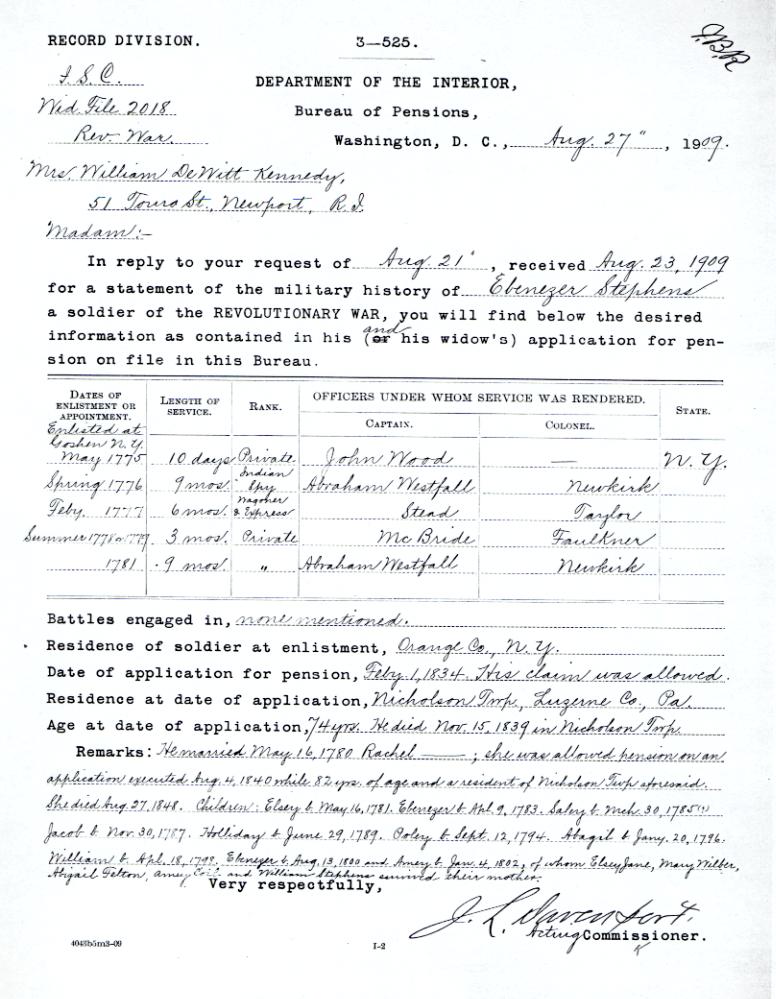 J.B.R
RECORD DIVISION.
3—525.
I. S. C.
Wid. File 2018
Rev. War.
DEPARTMENT OF THE INTERIOR,
Bureau of Pensions,
Washington, D. C., Aug. 27", 1909.
Mrs. William DeWitt Kennedy,
51 Touro St., Newport, R.I.
Madam:-
In reply to your request of Aug. 21", received Aug. 23, 1909
for a statement of the military history of Ebenezer Stephens
a soldier of the REVOLUTIONARY WAR, you will find below the desired
information as contained in his (or and his widow's) application for pen-
sion on file in this Bureau.
DATES OF ENLISTMENT OR APPOINTMENT. LENGTH OF SERVICE. RANK. OFFICERS UNDER WHOM SERVICE WAS RENDERED. STATE.
CAPTAIN. COLONEL.
Enlisted at
Goshen N.Y.
May 1775 10 days Private John Wood — N.Y.
Spring 1776 9 mos. Indian Spy Abraham Westfall Newkirk
Feby. 1777 6 mos. Wagoner & Express Stead Taylor
Summer 1778 or 1779 3 mos. Private McBride Faulkner
1781 9 mos. " Abraham Westfall Newkirk
Battles engaged in, none mentioned.
Residence of soldier at enlistment, Orange Co., N.Y.
Date of application for pension, Feby. 1, 1834. His claim was allowed.
Residence at date of application, Nicholson Twp., Luzerne Co., Pa.
Age at date of application, 74 yrs. He died Nov. 15, 1839 in Nicholson Twp.
Remarks: He married May 16, 1780 Rachel —— ; she was allowed pension on an
application executed Aug. 4, 1840 while 82 yrs. of age and a resident of Nicholson Twp aforesaid.
She died Aug. 27, 1848. Children: Elsey b. May 16, 1781. Ebenezer b. Apl. 9, 1783. Salery b. Mch. 30, 1785(?)
Jacob b. Nov. 30, 1787. Holliday b. June 29, 1789. Poley b. Sept. 12, 1794. Abagil b. Jany. 20, 1796.
William b. Apl. 18, 1798. Ebenezer b. Aug. 13, 1800 and Amey b. Jan. 4, 1802, of whom Elsey Jane, Mary Wilber,
Abigail Felton, Amey and William Stephens survived their mother.
Very respectfully,
J. L. Davenport.
Acting Commissioner.
4043b5m3-09
I-2